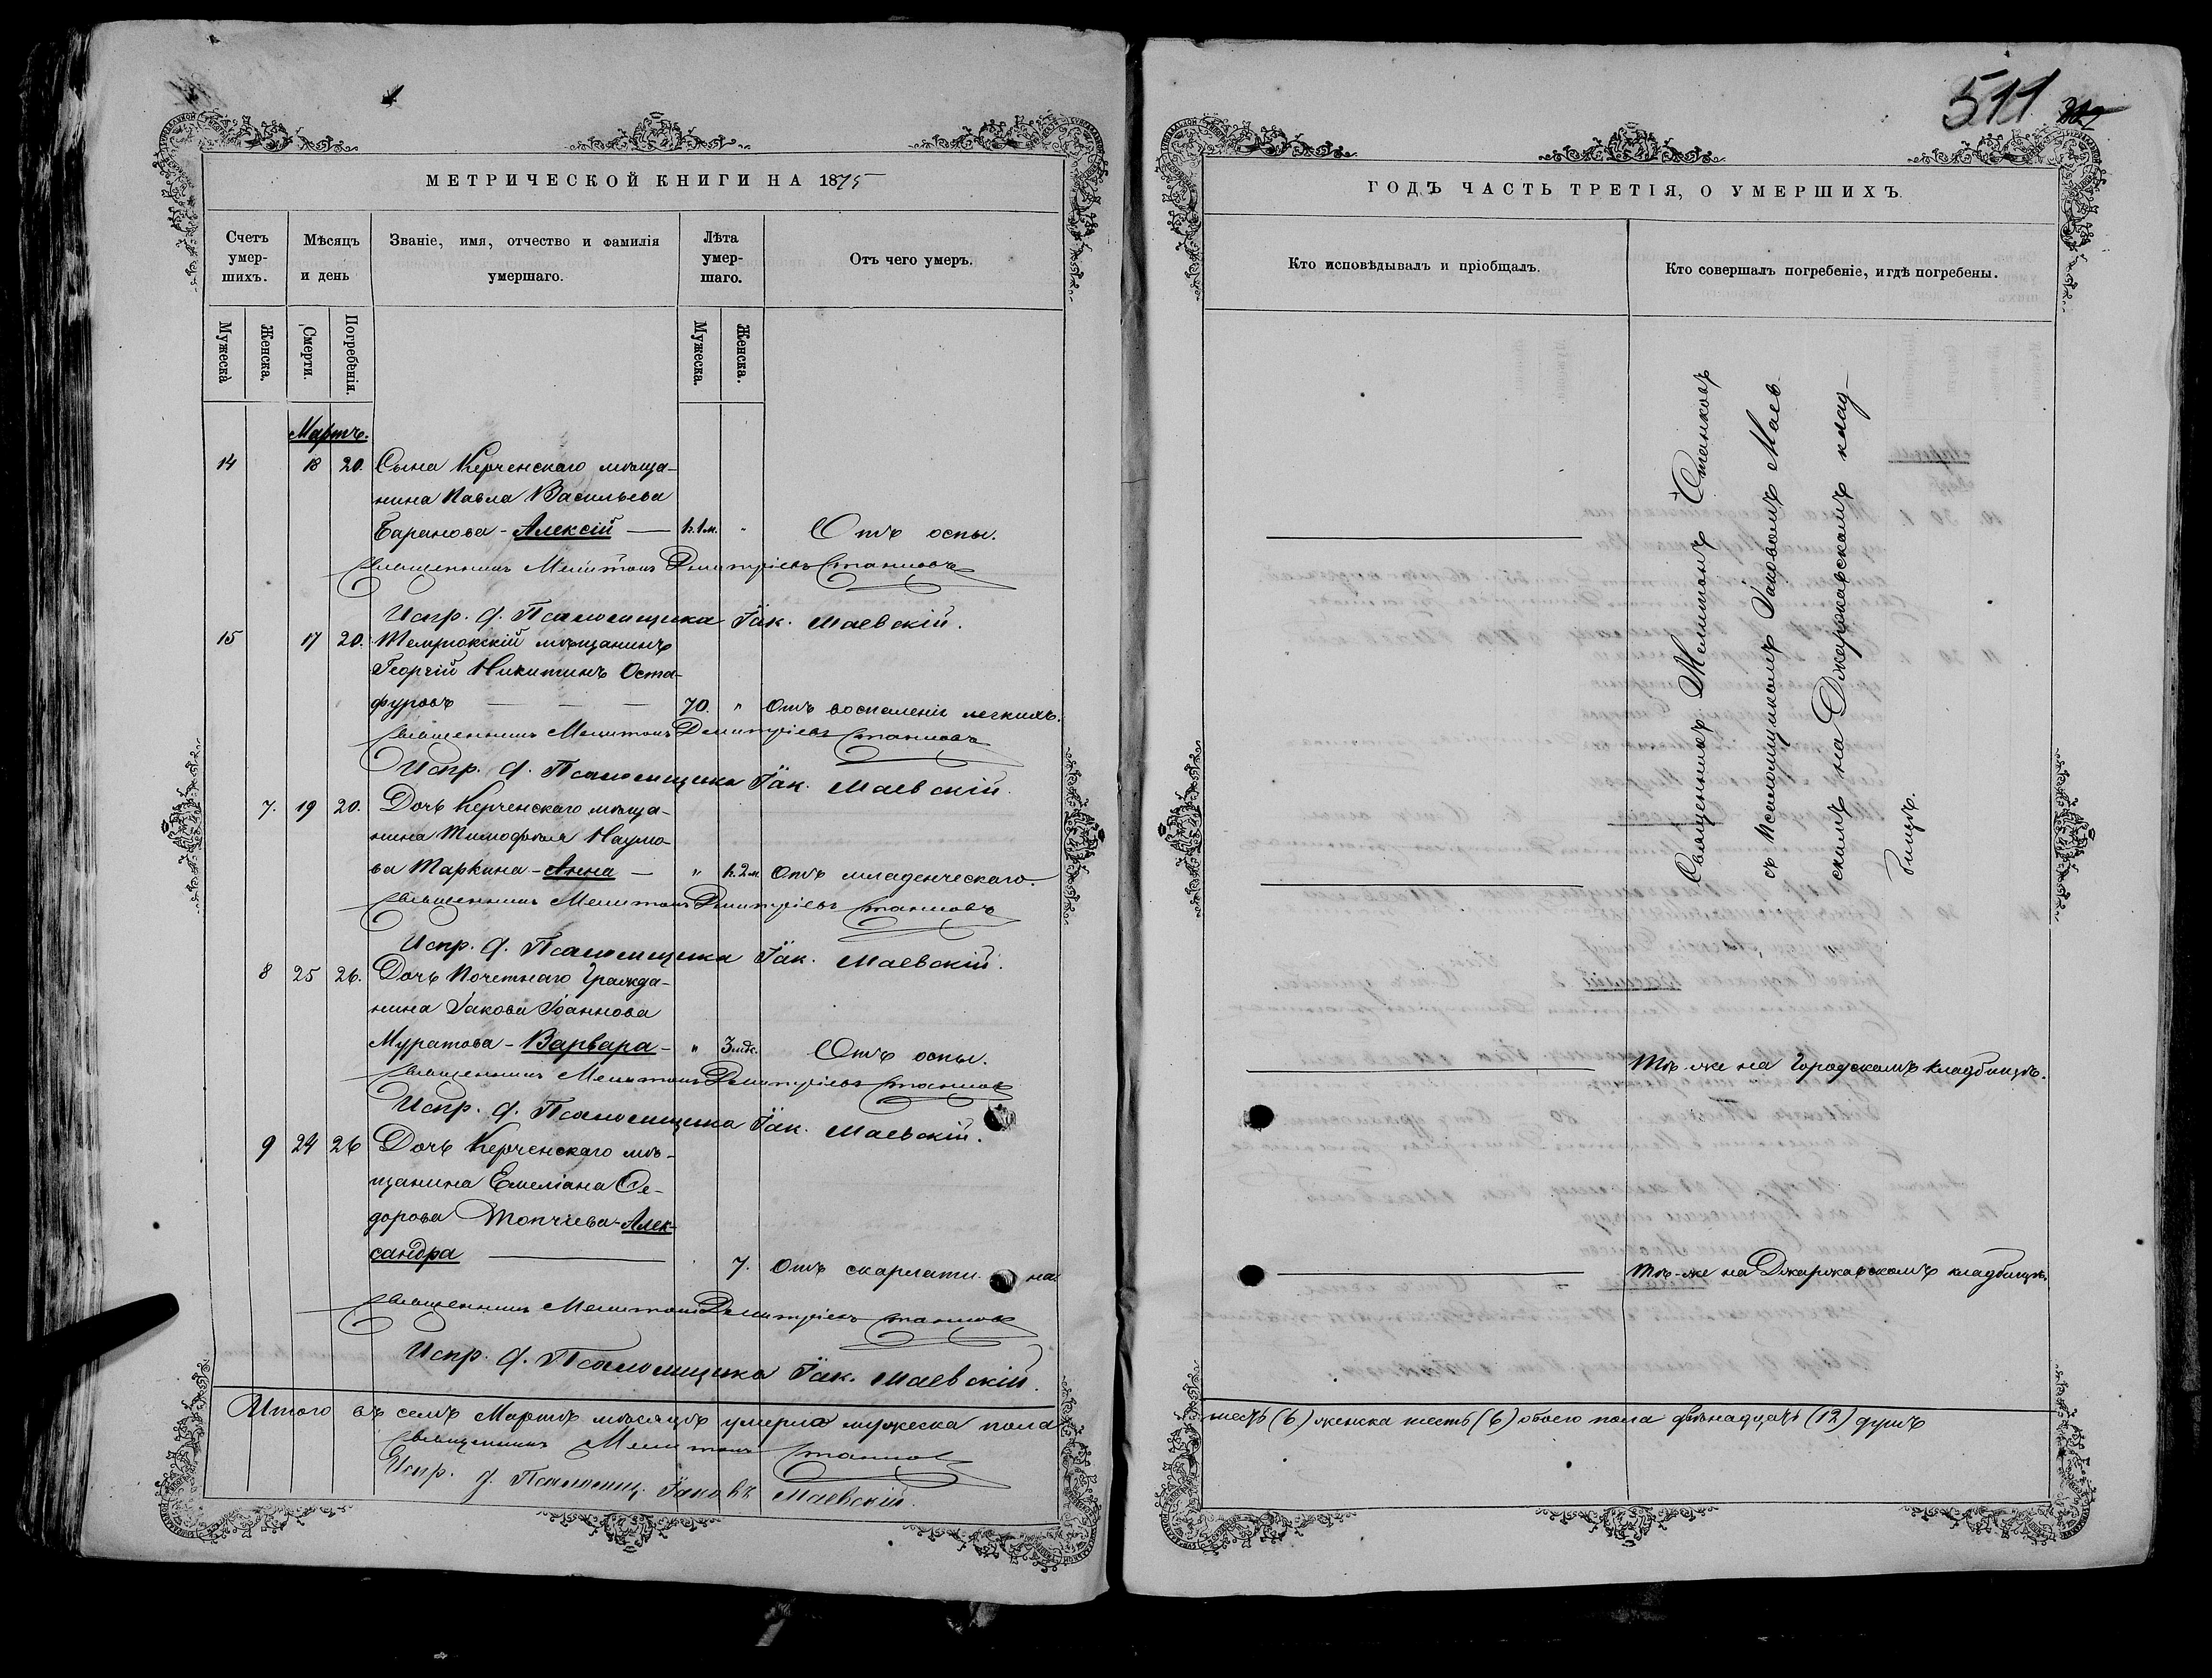 511
МЕТРИЧЕСКОЙ КНИГИ НА 1875
Счетъ умер-шихъ.
Мѣсяцъ и день
Званіе, имя, отчество и фамилія умершаго.
Лѣта умер-шаго.
Отъ чего умеръ.
Мужеска
Женска.
Смерти.
Погребенія.
Мужеска.
Женска.
Мартъ.
14 18 20. Сына Керченскаго мѣща-
нина Павла Васильева
Баранова - Алексій — " Отъ оспы.
Священникъ Мелитонъ Димитріевъ Станковъ
Испр. д. Псаломщика Іак. Маевскій.
15 17 20. Темрюкскій мѣщанинъ
Георгій Никитинъ Оста-
фуровъ — — — 70. " Отъ воспаленія легкихъ.
Священникъ Мелитонъ Димитріевъ Станковъ
Испр. д. Псаломщика Іак. Маевскій.
7. 19 20. Дочь Керченскаго мѣща-
нина Тимофѣя Наумо-
ва Маркина - Анна — " Отъ младенческаго.
Священникъ Мелитонъ Димитріевъ Станковъ
Испр. д. Псаломщика Іак. Маевскій.
8 25 26. Дочь Почетнаго Гражда-
нина Іакова Іоаннова
Муратова - Варвара - " Отъ оспы.
Священникъ Мелитонъ Димитріевъ Станковъ
Испр. д. Псаломщика Іак. Маевскій.
9 24 26 Дочь Керченскаго мѣ-
щанина Емеліана Ѳе-
дорова Топчіева - Алек-
сандра — 7. Отъ скарлати на
Священникъ Мелитонъ Димитріевъ Станковъ
Испр. д. Псаломщика Іак. Маевскій.
Итого въ семъ Мартѣ мѣсяцѣ умерло мужеска пола
Священникъ Мелитонъ Станковъ
Испр. д. Псаломщ. Іаковъ Маевскій.
ГОДЪ ЧАСТЬ ТРЕТІЯ, О УМЕРШИХЪ.
Кто исповѣдывалъ и пріобщалъ.
Кто совершалъ погребеніе, и гдѣ погребены.
Священникъ Мелитонъ Станковъ
съ Псаломщикомъ Іаковомъ Маев-
скимъ на Джаржавскомъ клад-
бищѣ.
Тѣ-же на Городскомъ кладбищѣ.
Тѣ-же на Джаржавскомъ кладбищѣ.
шесть (6) женска шесть (6) обоего пола двѣнадцать (12) душъ